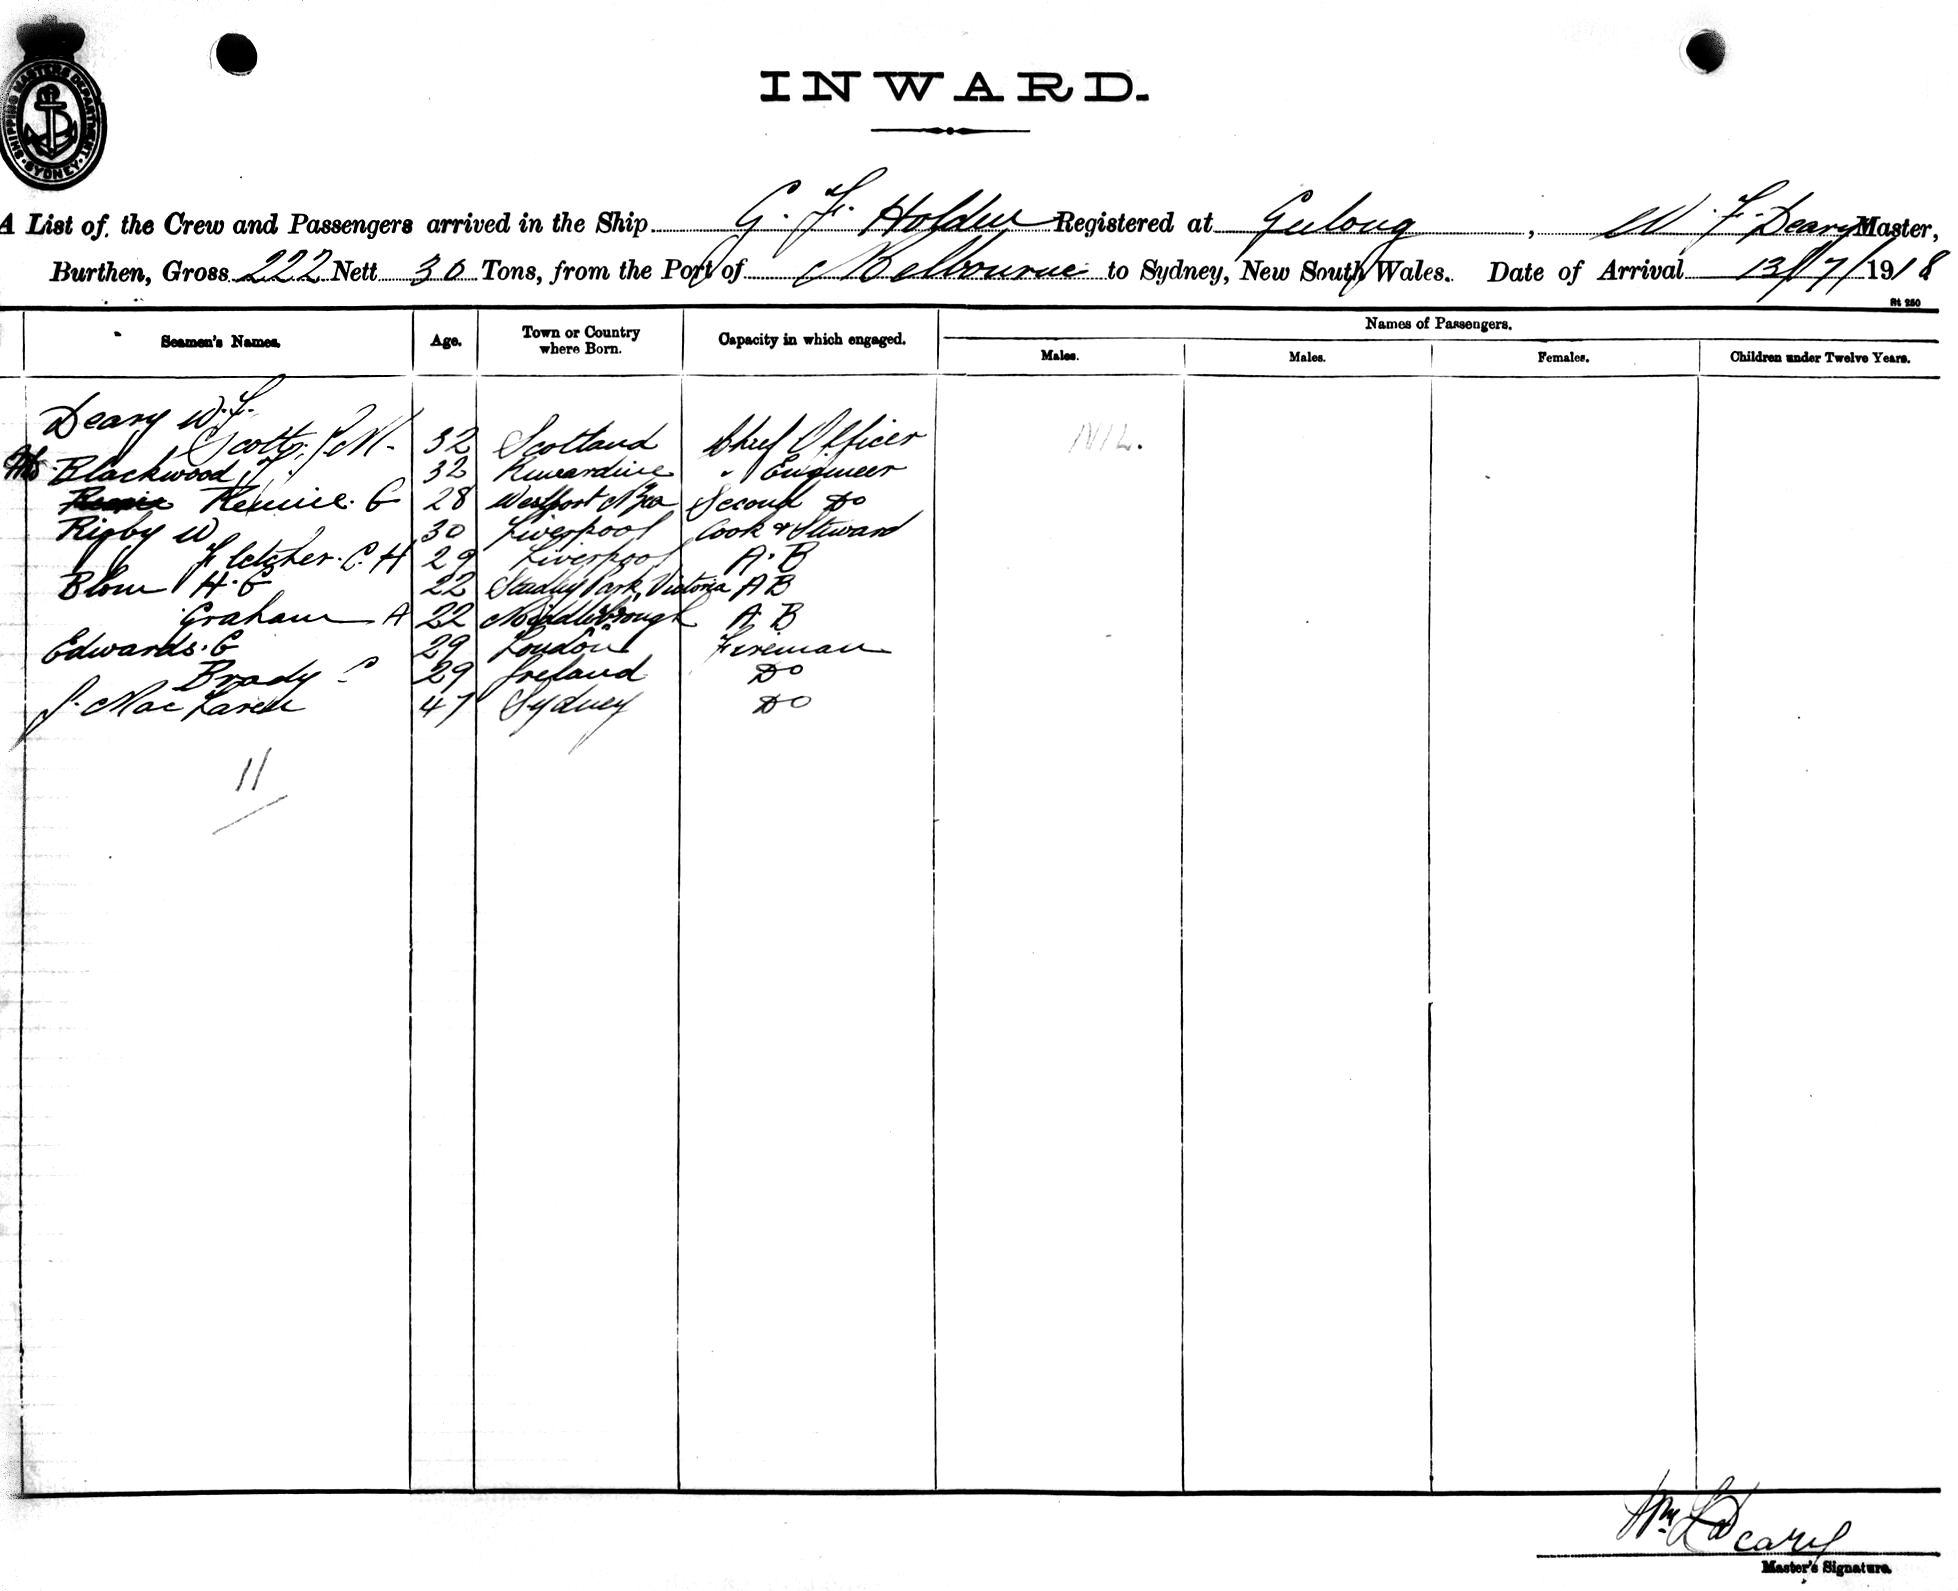 SHIPPING MASTERS DEPARTMENT
SYDNEY
INWARD.
A List of the Crew and Passengers arrived in the Ship G. F. Holder Registered at Geelong, W. F. Deary Master,
Burthen, Gross 222 Nett 30 Tons, from the Port of Melbourne to Sydney, New South Wales. Date of Arrival 13/7/1918
St 250
Seamen's Names. Age. Town or Country where Born. Capacity in which engaged. Names of Passengers.
Males. Males. Females. Children under Twelve Years.
Deary W. F.
Scott, J. M. 32 Scotland Chief Officer NIL.
Blackwood, T. 32 Kincardine " Engineer
Rennie. G 28 Westport N Zea Second Do
Rigby W 30 Liverpool Cook & Steward
Fletcher. C. H 29 Liverpool A. B
Blom H. G 22 Studley Park, Victoria A B
Graham A 22 Middlesbrough A. B
Edwards. G 29 London Fireman
Brady C 29 Ireland Do
J. Mac Laren 47 Sydney Do
11
Wm F Deary
Master's Signature.